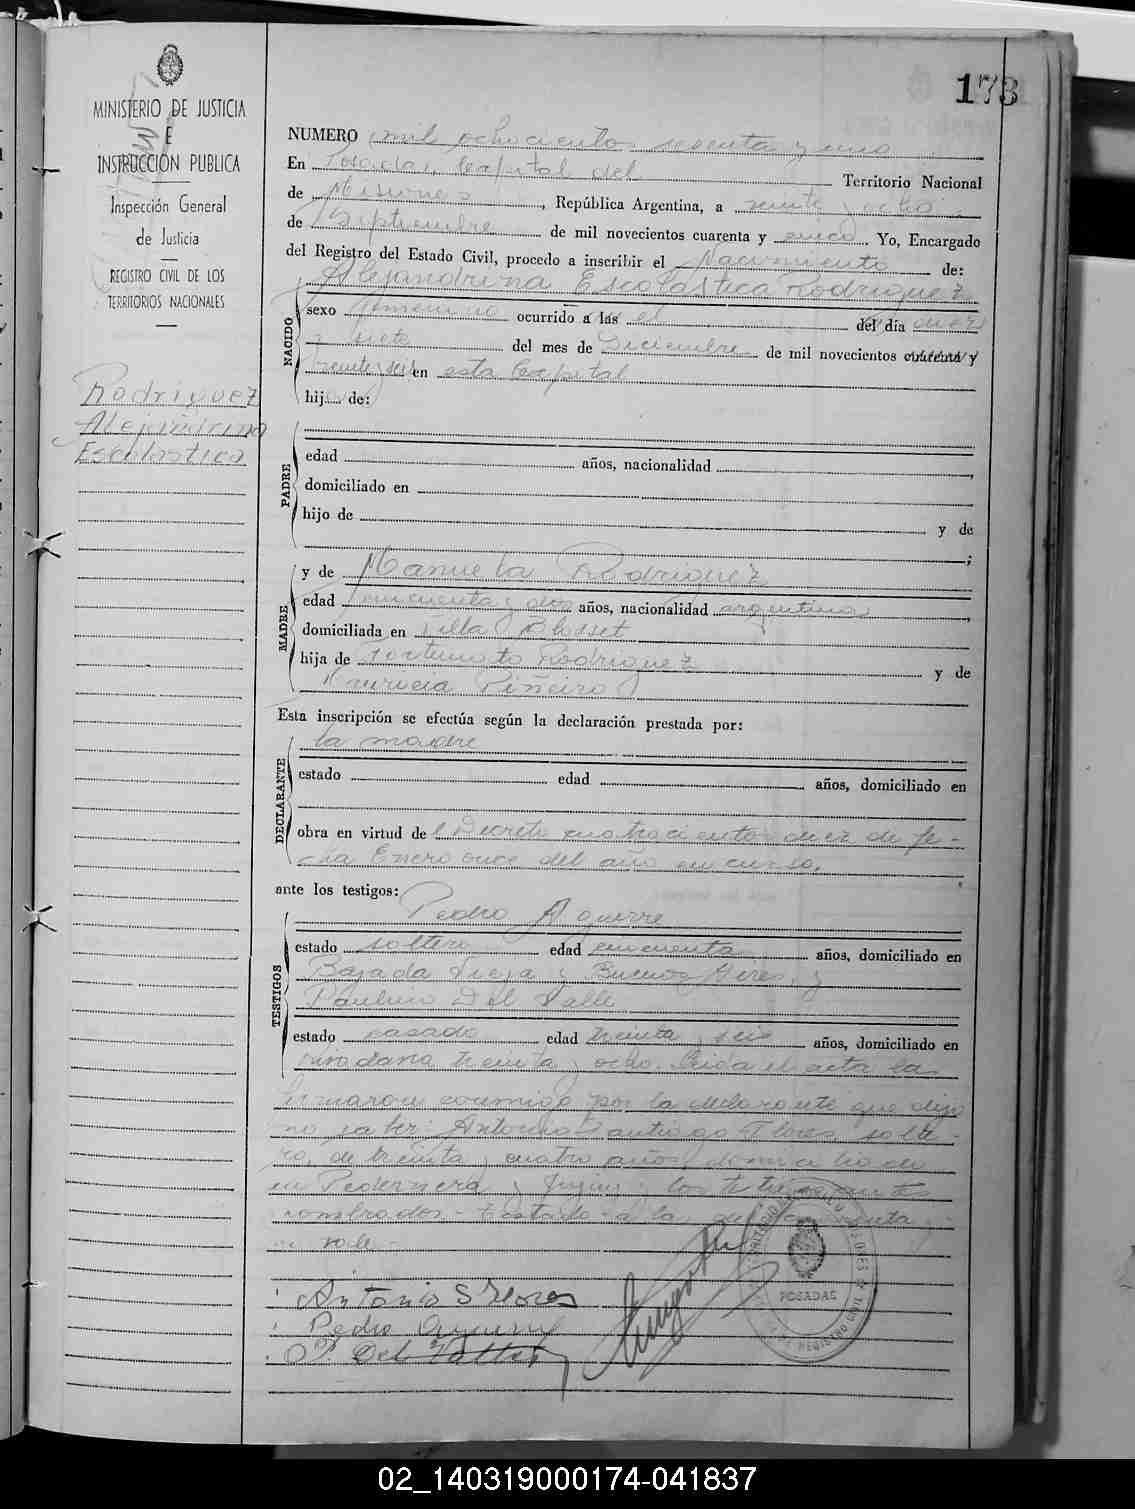 173
MINISTERIO DE JUSTICIA
E
INSTRUCCIÓN PUBLICA
Inspección General
de Justicia
REGISTRO CIVIL DE LOS
TERRITORIOS NACIONALES
Rodriguez
Alejandrina
Escolastica
NUMERO mil ochocientos sesenta y uno
En Posadas, Capital del Territorio Nacional
de Misiones, República Argentina, a veinte y ocho
de Septiembre de mil novecientos cuarenta y cinco. Yo, Encargado
del Registro del Estado Civil, procedo a inscribir el Nacimiento de:
Alejandrina Escolastica Rodriguez
NACIDO
sexo femenino ocurrido a las el del día diez
y siete del mes de Diciembre de mil novecientos cuarenta y
veinte seis en esta Capital
hija de:
PADRE
edad años, nacionalidad
domiciliado en
hijo de y de
;
MADRE
y de Manuela Rodriguez
edad cincuenta y dos años, nacionalidad argentina
domiciliada en Villa Blosset
hija de Fortunato Rodriguez y de
Piñeiro
Esta inscripción se efectúa según la declaración prestada por:
DECLARANTE
la madre
estado edad años, domiciliado en
obra en virtud del Decreto cuatrocientos diez de fe-
cha Enero once del año en curso.
ante los testigos:
TESTIGOS
Pedro Aguirre
estado soltero edad cincuenta años, domiciliado en
Bajada Vieja y Buenos Aires, y
Paulino Del Valle
estado casado edad treinta y seis años, domiciliado en
Rivadavia treinta y ocho. Leida el acta la
firmaron conmigo por la declarante que dijo
no saber: Antonio Santiago Flores, solte-
ro, de treinta y cuatro años, domiciliado
en Pedernera y Jujuy y los testigos antes
nombrados.- Testado - a la
no vale.-
Antonio S Flores
Pedro Aguirre
P. Del Valle
POSADAS
02_140319000174-041837